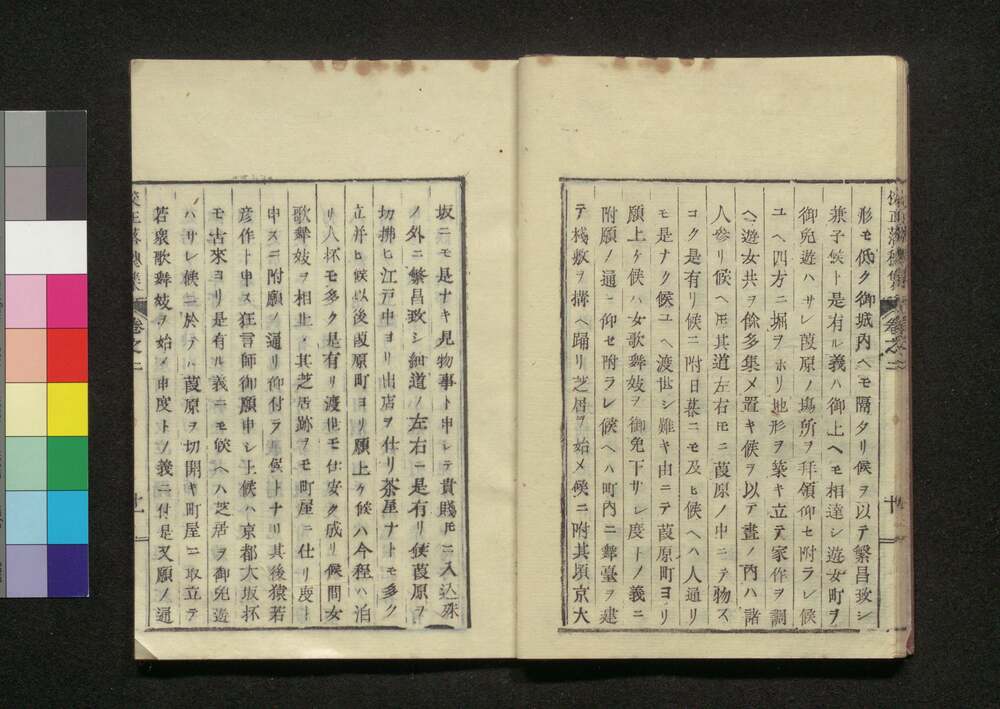 形モ低ク御城内ヘモ隔タリ候ヲ以テ繁昌致シ
兼子候ト是有ル義ハ御上ヘモ相達シ遊女町ヲ
御免遊ハサレ葭原ノ場所ヲ拜領仰セ附ラレ候
ユヘ四方ニ堀ヲホリ地形ヲ築キ立テ家作ヲ調
ヘ遊女共ヲ餘多集メ置キ候ヲ以テ晝ノ內ハ諸
人參リ候ヘ𪜈其道左右𪜈ニ葭原ノ中ニテ物ス
コク是有リ候ニ附日暮ニモ及ヒ候ヘハ人通リ
モ是ナク候ユヘ渡世シ難キ由ニテ葭原町ヨリ
願上ケ候ハ女歌舞妓ヲ御免下サレ度トノ義ニ
附願ノ通リ仰セ附ラレ候ヘハ町內ニ舞臺ヲ建
テ棧敷ヲ搆ヘ踊リ芝居ヲ始メ候ニ附其頃京大
卷之二
十
坂ニモ是ナキ見物事ト申シテ貴賤𪜈ニ入込殊
ノ外ニ繁昌致シ細道ノ左右ニ是有リ候葭原ヲ
切拂ヒ江戶中ヨリ出店ヲ仕リ茶屋ナトモ多ク
立并ヒ候以後葭原町ヨリ願上ケ候ハ今程ハ泊
リ人杯モ多ク是有リ渡世モ仕安ク成リ候間女
歌舞妓ヲ相止メ其芝居跡ヲモ町屋ニ仕リ度ト
申スニ附願ノ通リ仰付ラレ候トナリ其後猿若
彥作ト申ス狂言師御願申シ上候ハ京都大坂杯
モ古來ヨリ是有ル義ニモ候ヘハ芝居ヲ御免遊
ハサレ候ニ於テハ葭原ヲ切開キ町屋ニ取立テ
若衆歌舞妓ヲ始メ申度トノ義ニ付是又願ノ通
卷之二